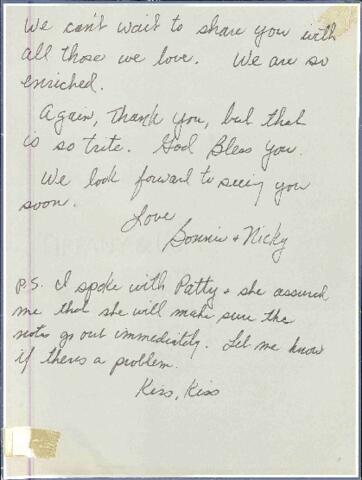 We can't wait to share you with
all those we love. We are so
enriched.
Again, thank you, but that
is so trite. God Bless you.
We look forward to seeing you
soon.
Love
Bonnie + Nicky
P.S. I spoke with Patty + she assured
me that she will make sure the
notes go out immediately. Let me know
if theres a problem.
Kiss, Kiss